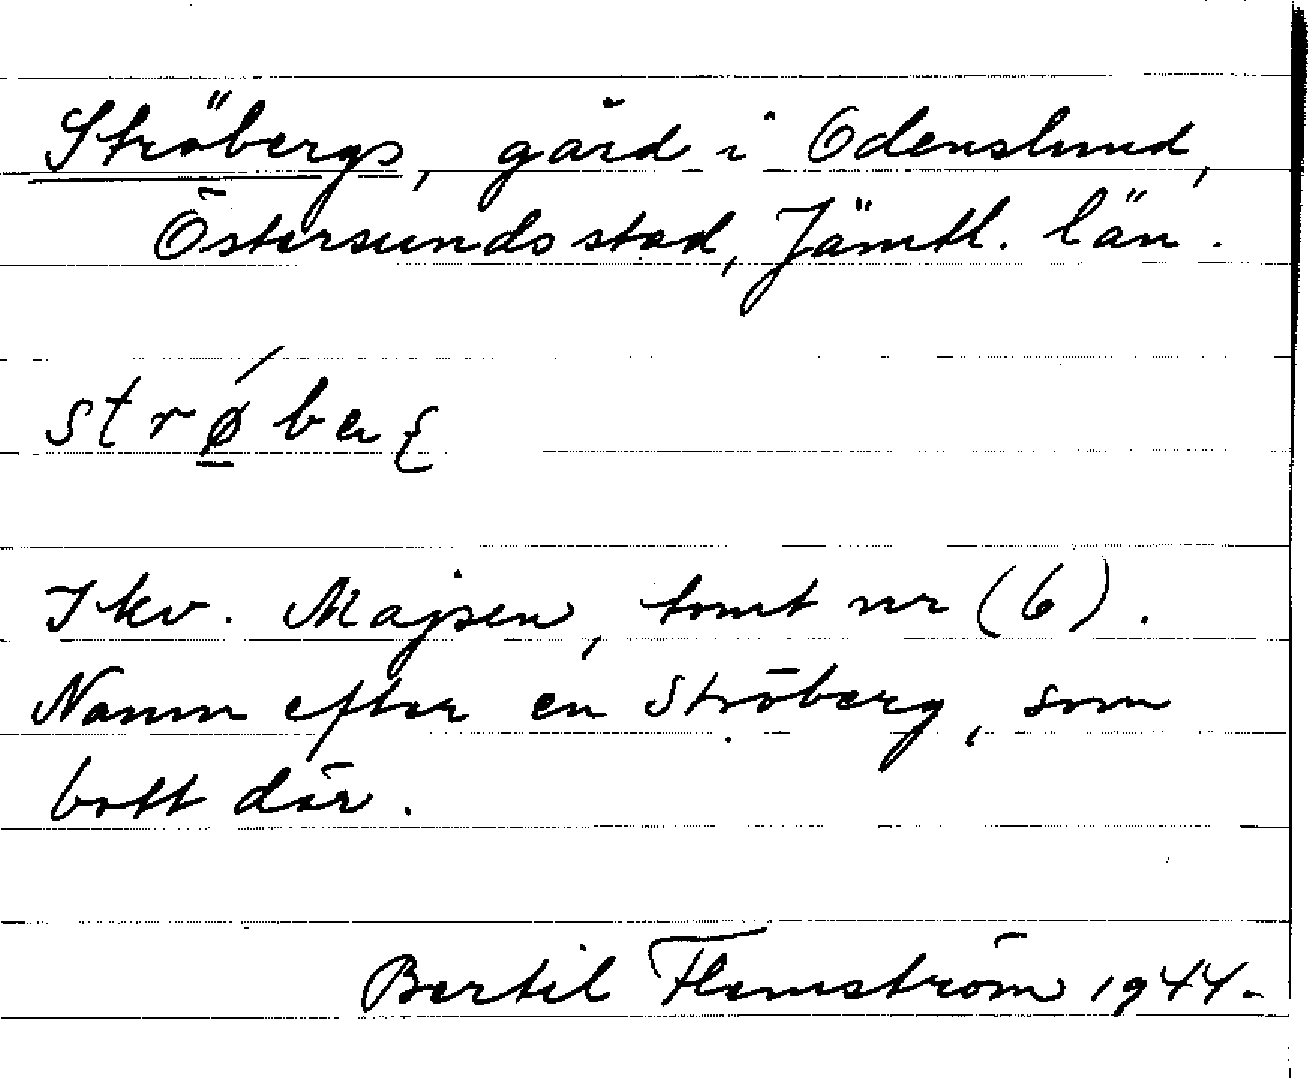 Ströbergs, gård i Odenslund,
Östersunds stad, Jämtl. län.
strǿberξ
I kv. Majsen, tomt nr (6).
Namn efter en Ströberg, som
bott där.
Bertil Flemström 1944.